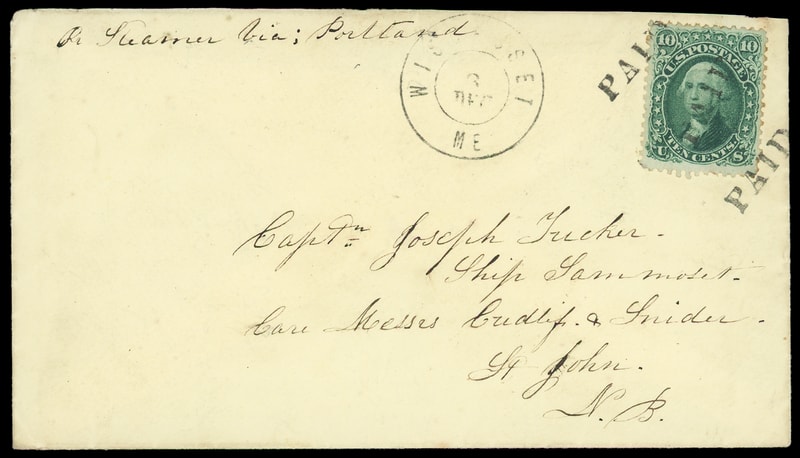 Pr Steamer Via; Portland
WISCASSET
3
DEC
ME
PAID
PAID
PAID
10 10
U.S. POSTAGE
TEN CENTS
U S
Captn Joseph Tucker.
Ship Sammoset.
Care Messrs Cudlip. & Snider.
St John.
N. B.